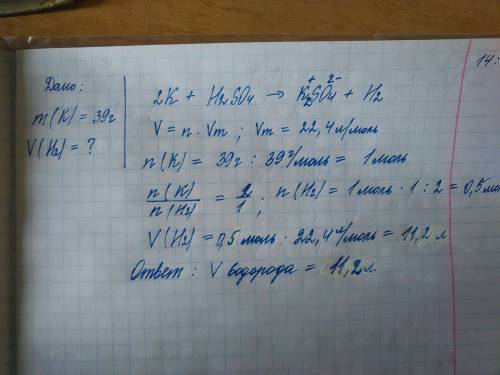 14:
Дано:
m(K) = 39г
V(H2) = ?
2K + H2SO4 → K2SO4 + H2
+ 2-
V = n · Vm ; Vm = 22,4 л/моль
n(K) = 39г : 39 г/моль = 1 моль
n(K) / n(H2) = 2/1 ; n(H2) = 1 моль · 1 : 2 = 0,5 мол
V(H2) = 0,5 моль · 22,4 л/моль = 11,2 л
Ответ : V водорода = 11,2 л.